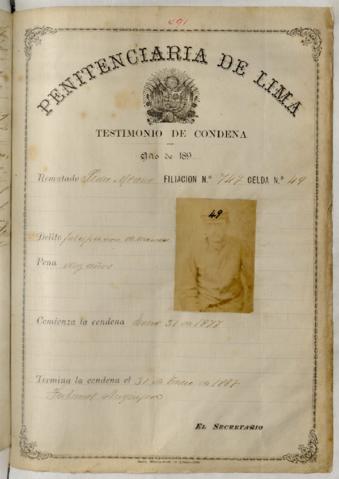 291
PENITENCIARIA DE LIMA
TESTIMONIO DE CONDENA
Año de 189
Rematado FILIACION N.° 747 CELDA N.° 49
49
Delito
Pena diez años
Comienza la condena Enero 31 de 1877
Termina la condena el 31 de Enero de 1887
Tribunal Arequipa
EL SECRETARIO